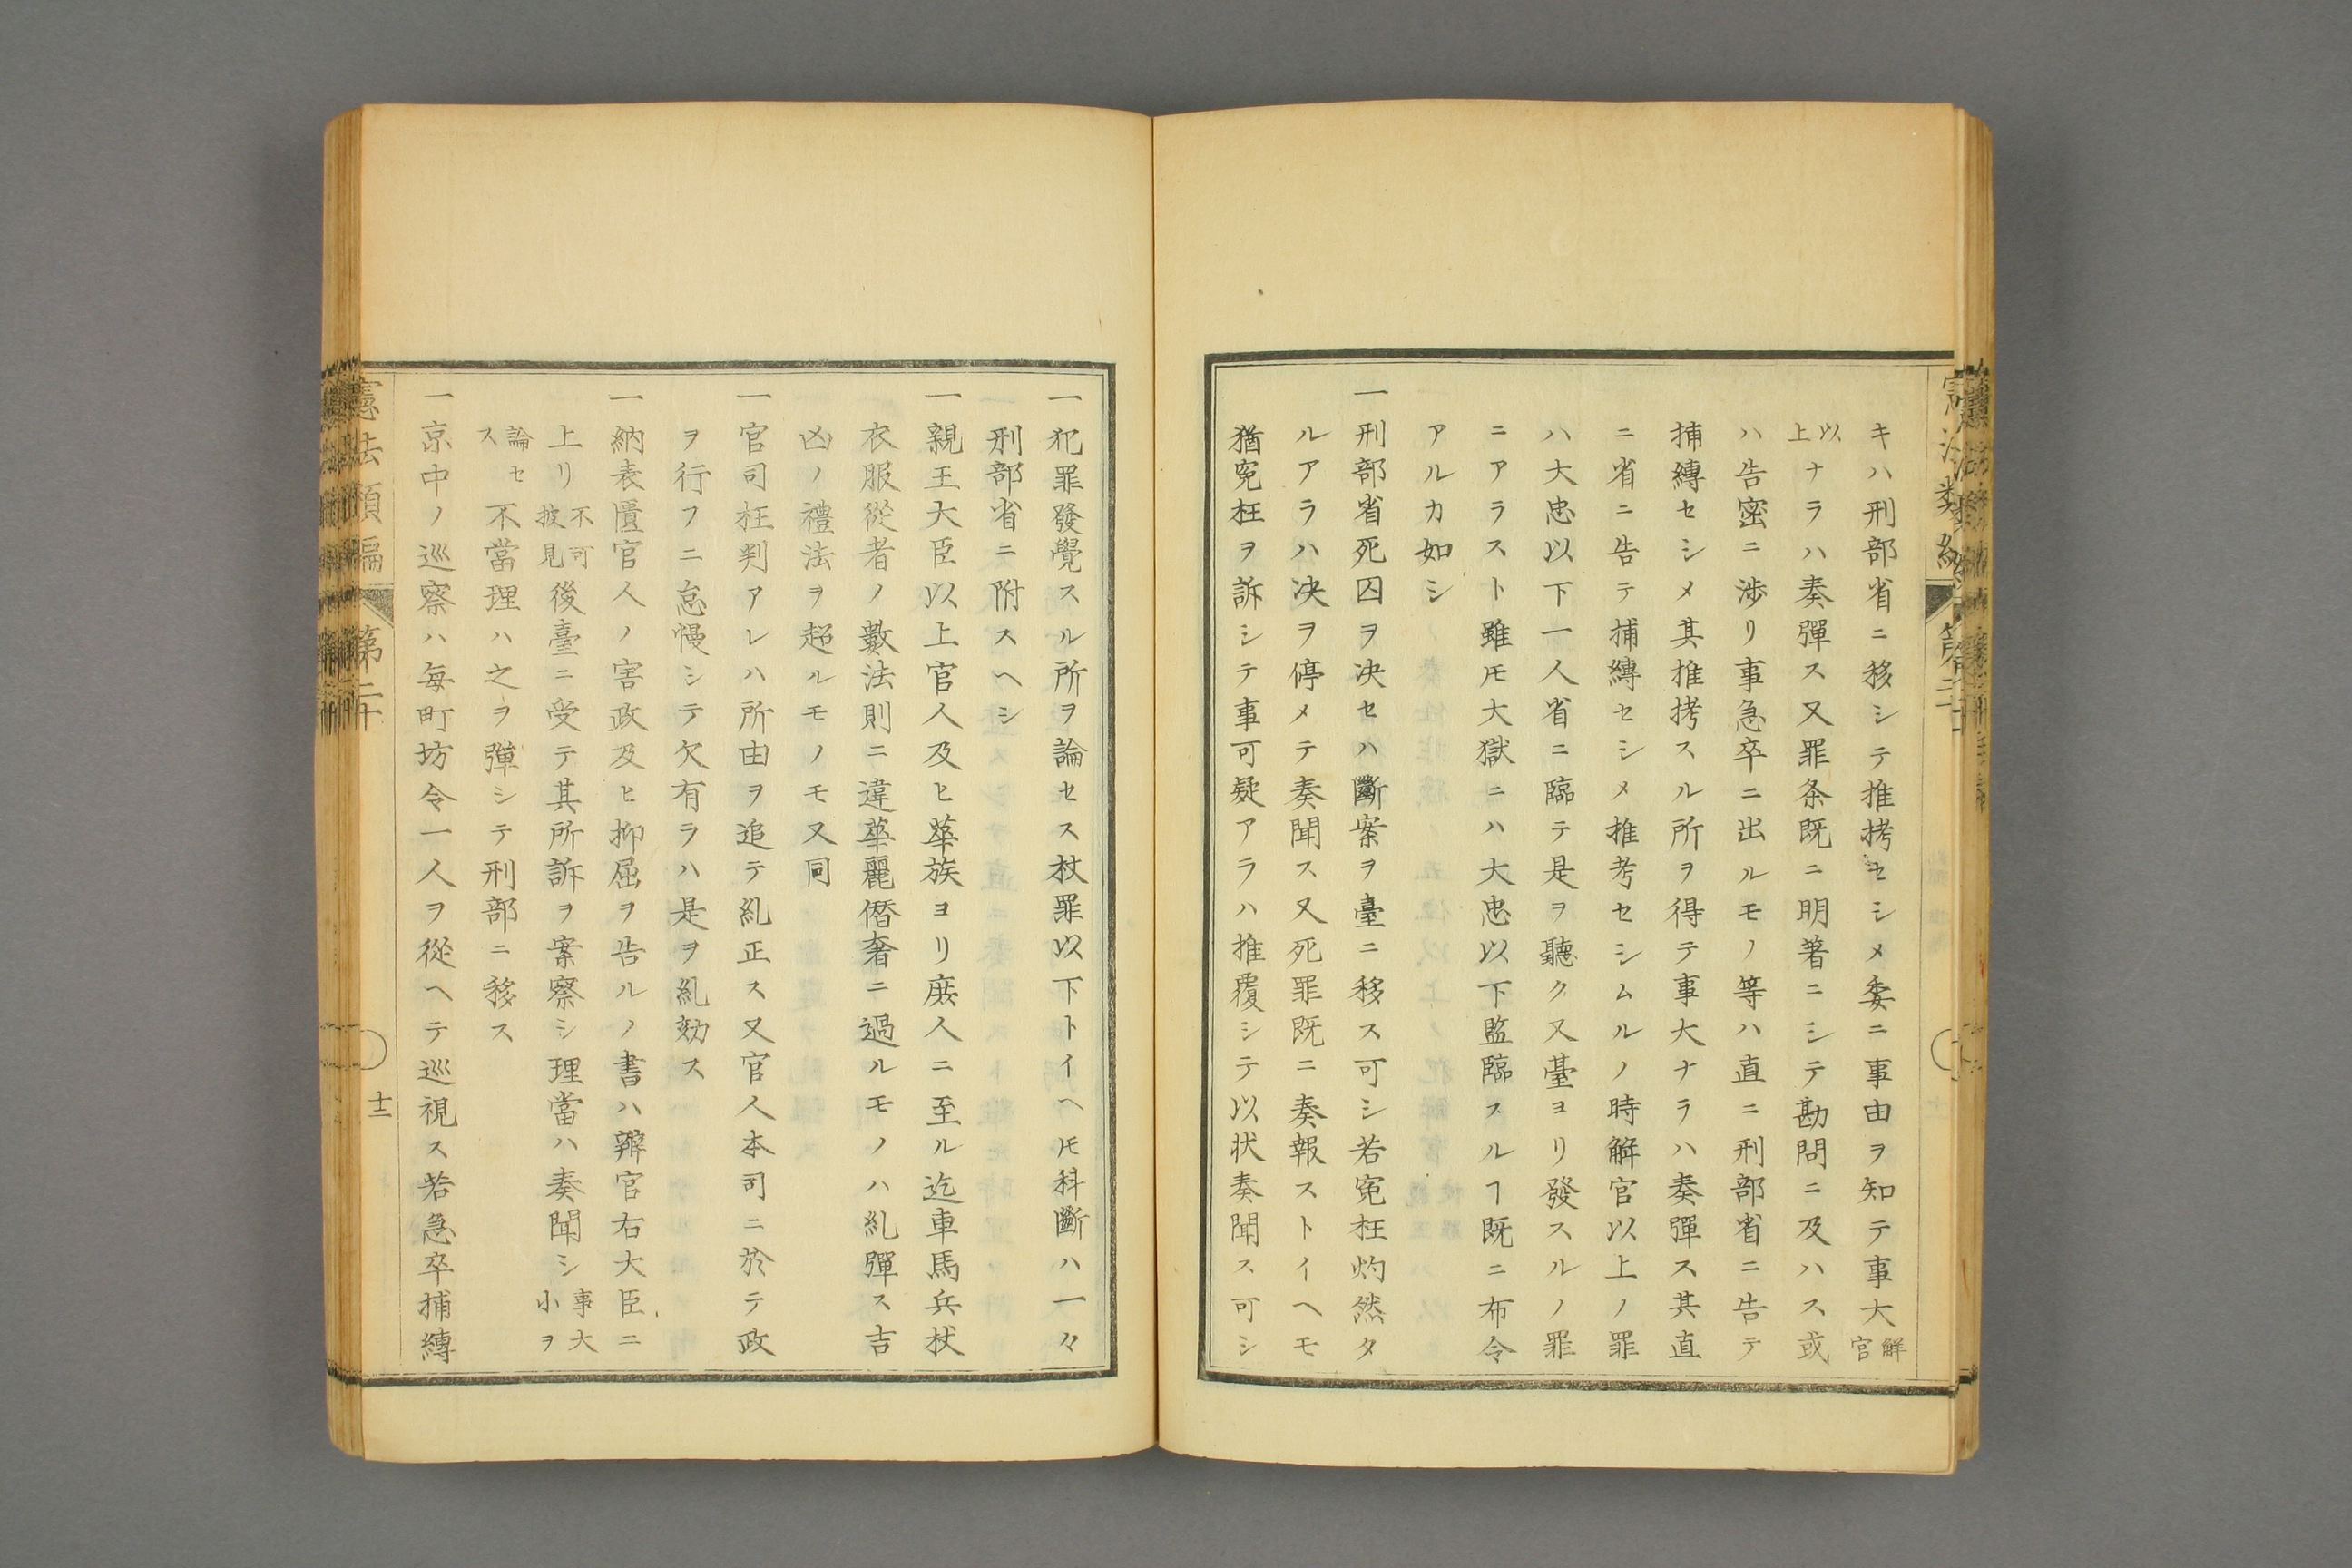 キハ刑部省ニ移シテ推拷セシメ委ニ事由ヲ知テ事大解官
以上ナラハ奏彈ス又罪条既ニ明著ニシテ勘問ニ及ハス或
ハ告密ニ渉リ事急卒ニ出ルモノ等ハ直ニ刑部省ニ告テ
捕縛セシメ其推拷スル所ヲ得テ事大ナラハ奏彈ス其直
ニ省ニ告テ捕縛セシメ推考セシムルノ時解官以上ノ罪
ハ大忠以下一人省ニ臨テ是ヲ聽ク又臺ヨリ發スルノ罪
ニアラスト雖𪜈大獄ニハ大忠以下監臨スルヿ既ニ布令
アルカ如シ
一刑部省死囚ヲ决セハ斷案ヲ臺ニ移ス可シ若寃枉灼然タ
ルアラハ决ヲ停メテ奏聞ス又死罪既ニ奏報ストイヘモ
猶寃枉ヲ訴シテ事可疑アラハ推覆シテ以状奏聞ス可シ
一犯罪發覺スル所ヲ論セス杖罪以下トイヘ𪜈科斷ハ一々
刑部省ニ附スヘシ
一親王大臣以上官人及ヒ華族ヨリ庶人ニ至ル迄車馬兵杖
衣服從者ノ數法則ニ違華麗僭奢ニ過ルモノハ糺彈ス吉
凶ノ禮法ヲ超ルモノモ又同
一官司枉判アレハ所由ヲ追テ糺正ス又官人本司ニ於テ政
ヲ行フニ怠慢シテ欠有ラハ是ヲ糺効ス
一納表匱官人ノ害政及ヒ抑屈ヲ告ルノ書ハ辨官右大臣ニ
上リ不可披見後臺ニ受テ其所訴ヲ案察シ理當ハ奏聞シ事大小ヲ
論セス不當理ハ之ヲ彈シテ刑部ニ移ス
一京中ノ巡察ハ毎町坊令一人ヲ從ヘテ巡視ス若急卒捕縛
憲法類編 第二十
十二